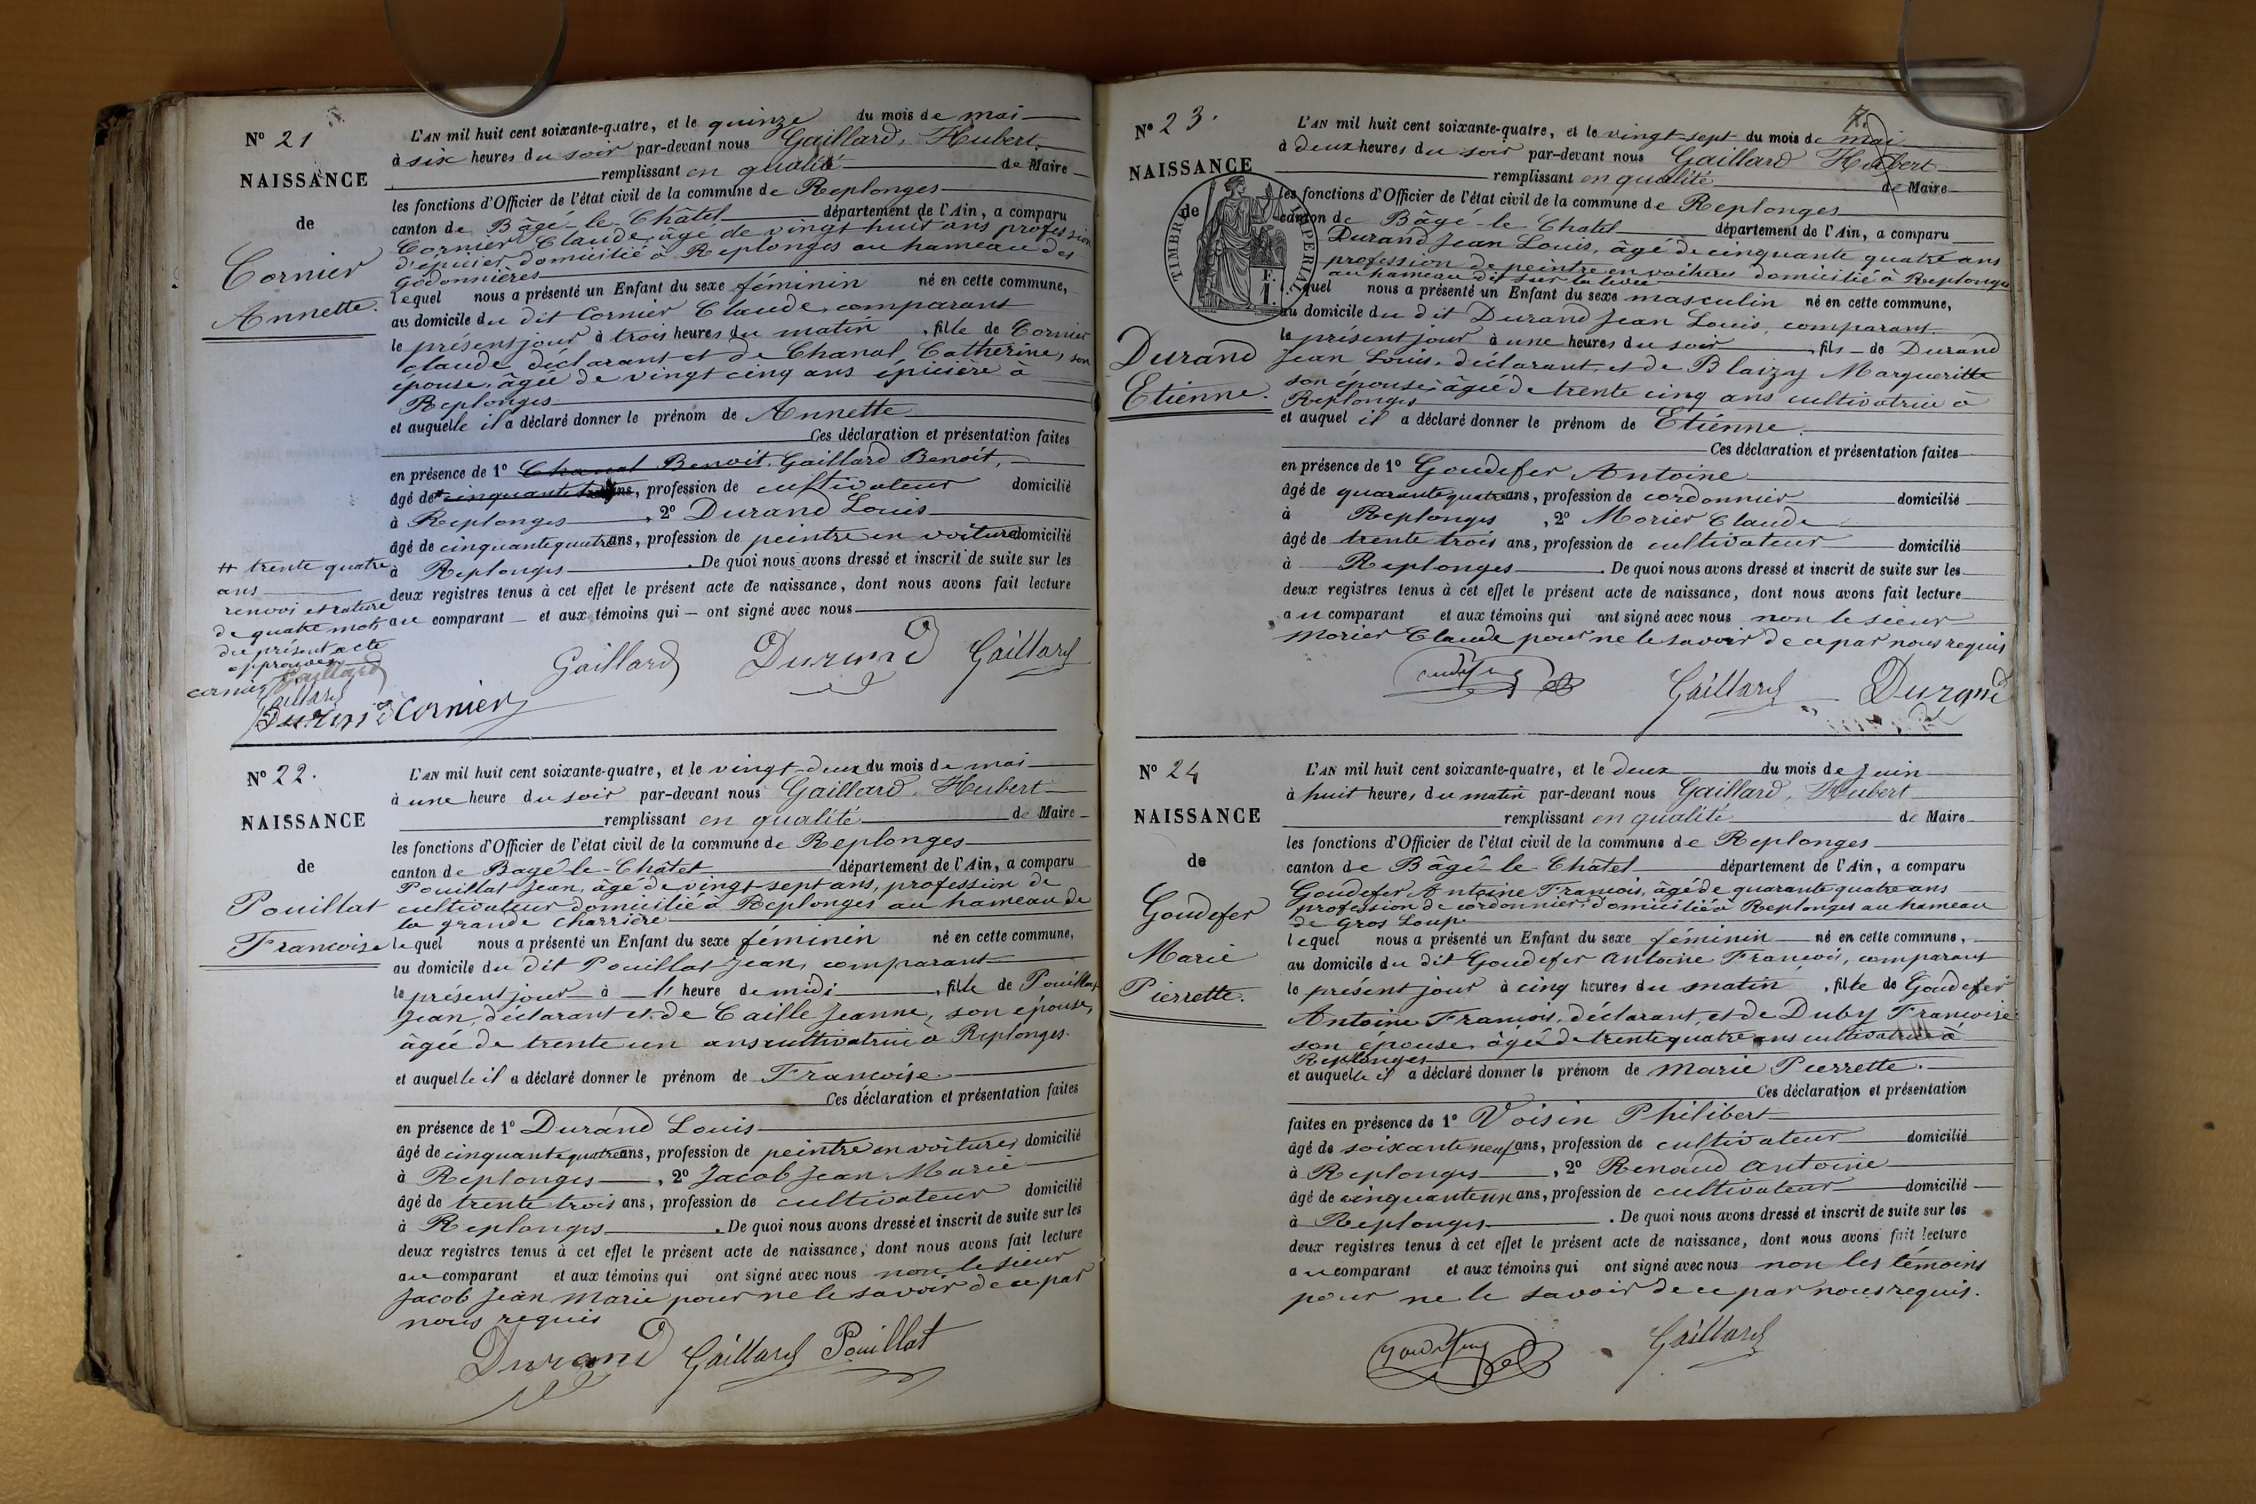 N° 21
NAISSANCE
de
Cornier
Annette.
L'AN mil huit cent soixante-quatre, et le quinze du mois de mai
à six heures du soir par-devant nous Gaillard, Hubert
remplissant en qualité de Maire
les fonctions d'Officier de l'état civil de la commune de Replonges
canton de Bâgé-le-Châtel département de l'Ain, a comparu
Cornier Claude, âgé de vingt huit ans profession
d'épicier domicilié à Replonges au hameau des
Godonnières
lequel nous a présenté un Enfant du sexe féminin né en cette commune,
au domicile du dit Cornier Claude, comparant
le présent jour à trois heures du matin, fille de Cornier
Claude, déclarant et de Chanal, Catherine, son
épouse, âgée de vingt cinq ans épicière à
Replonges
et auquelle il a déclaré donner le prénom de Annette
Ces déclaration et présentation faites
en présence de 1° Chanal Benoit, Gaillard Benoit,
âgé de cinquante ans, profession de cultivateur domicilié
à Replonges, 2° Durand Louis
âgé de cinquante quatre ans, profession de peintre en voitures domicilié
à Replonges. De quoi nous avons dressé et inscrit de suite sur les
deux registres tenus à cet effet le présent acte de naissance, dont nous avons fait lecture
au comparant et aux témoins qui ont signé avec nous
# trente quatre
ans
renvoi et rature
de quatre mots
du présent acte
approuvés
cornier Gaillard
Gaillard
Durand Cornier
Gaillard Durand Gaillard
N° 22.
NAISSANCE
de
Pouillat
Francoise
L'AN mil huit cent soixante-quatre, et le vingt-deux du mois de mai
à une heure du soir par-devant nous Gaillard, Hubert
remplissant en qualité de Maire
les fonctions d'Officier de l'état civil de la commune de Replonges
canton de Bagé-le-Châtel département de l'Ain, a comparu
Pouillat Jean, âgé de vingt-sept ans, profession de
cultivateur domicilié à Replonges au hameau de
la grande Charrière
lequel nous a présenté un Enfant du sexe féminin né en cette commune,
au domicile du dit Pouillat Jean, comparant
le présent jour à heure de midi, fille de Pouillat
Jean, déclarant et de Caille Jeanne, son épouse,
âgée de trente un ans cultivatrice à Replonges.
et auquelle il a déclaré donner le prénom de Francoise.
Ces déclaration et présentation faites
en présence de 1° Durand Louis
âgé de cinquante quatre ans, profession de peintre en voitures domicilié
à Replonges, 2° Jacob Jean Marie
âgé de trente trois ans, profession de cultivateur domicilié
à Replonges. De quoi nous avons dressé et inscrit de suite sur les
deux registres tenus à cet effet le présent acte de naissance, dont nous avons fait lecture
au comparant et aux témoins qui ont signé avec nous non le sieur
Jacob Jean Marie pour ne le savoir de ce par
nous requis
Durand Gaillard Pouillat
7.
N° 23.
NAISSANCE
de
TIMBRE IMPERIAL
Durand
Etienne.
L'AN mil huit cent soixante-quatre, et le vingt-sept du mois de mai
à deux heures du soir par-devant nous Gaillard Hubert
remplissant en qualité de Maire
les fonctions d'Officier de l'état civil de la commune de Replonges
canton de Bâgé-le-Chatel département de l'Ain, a comparu
Durand Jean Louis, âgé de cinquante quatre ans
profession de peintre en voitures domicilié à Replonges
au hameau dit Sur la levée
lequel nous a présenté un Enfant du sexe masculin né en cette commune,
au domicile du dit Durand Jean Louis, comparant.
le présent jour à une heures du soir, fils de Durand
Jean Louis, déclarant, et de Blaizy Marguerite
son épouse, âgée de trente cinq ans cultivatrice à
Replonges
et auquel il a déclaré donner le prénom de Etienne.
Ces déclaration et présentation faites
en présence de 1° Goudefer Antoine
âgé de quarante quatre ans, profession de cordonnier domicilié
à Replonges, 2° Morier Claude
âgé de trente trois ans, profession de cultivateur domicilié
à Replonges. De quoi nous avons dressé et inscrit de suite sur les
deux registres tenus à cet effet le présent acte de naissance, dont nous avons fait lecture
au comparant et aux témoins qui ont signé avec nous non le sieur
Morier Claude pour ne le savoir de ce par nous requis
Gaillard Durand
N° 24
NAISSANCE
de
Goudefer
Marie
Pierrette.
L'AN mil huit cent soixante-quatre, et le deux du mois de Juin
à huit heures du matin par-devant nous Gaillard, Hubert
remplissant en qualité de Maire
les fonctions d'Officier de l'état civil de la commune de Replonges
canton de Bâgé-le-Châtel département de l'Ain, a comparu
Goudefer Antoine Francois, âgé de quarante quatre ans
profession de cordonnier, domicilié à Replonges au hameau
de Gros Loup
lequel nous a présenté un Enfant du sexe féminin né en cette commune,
au domicile du dit Goudefer Antoine Francois, comparant
le présent jour à cinq heures du matin, fille de Goudefer
Antoine Francois, déclarant, et de Duby Francoise
son épouse, âgée de trente quatre ans cultivatrice à
Replonges
et auquelle il a déclaré donner le prénom de Marie Pierrette.
Ces déclaration et présentation
faites en présence de 1° Voisin Philibert
âgé de soixante neuf ans, profession de cultivateur domicilié
à Replonges, 2° Renaud Antoine
âgé de cinquante un ans, profession de cultivateur domicilié
à Replonges. De quoi nous avons dressé et inscrit de suite sur les
deux registres tenus à cet effet le présent acte de naissance, dont nous avons fait lecture
au comparant et aux témoins qui ont signé avec nous non les témoins
pour ne le savoir de ce par nous requis.
Gaillard